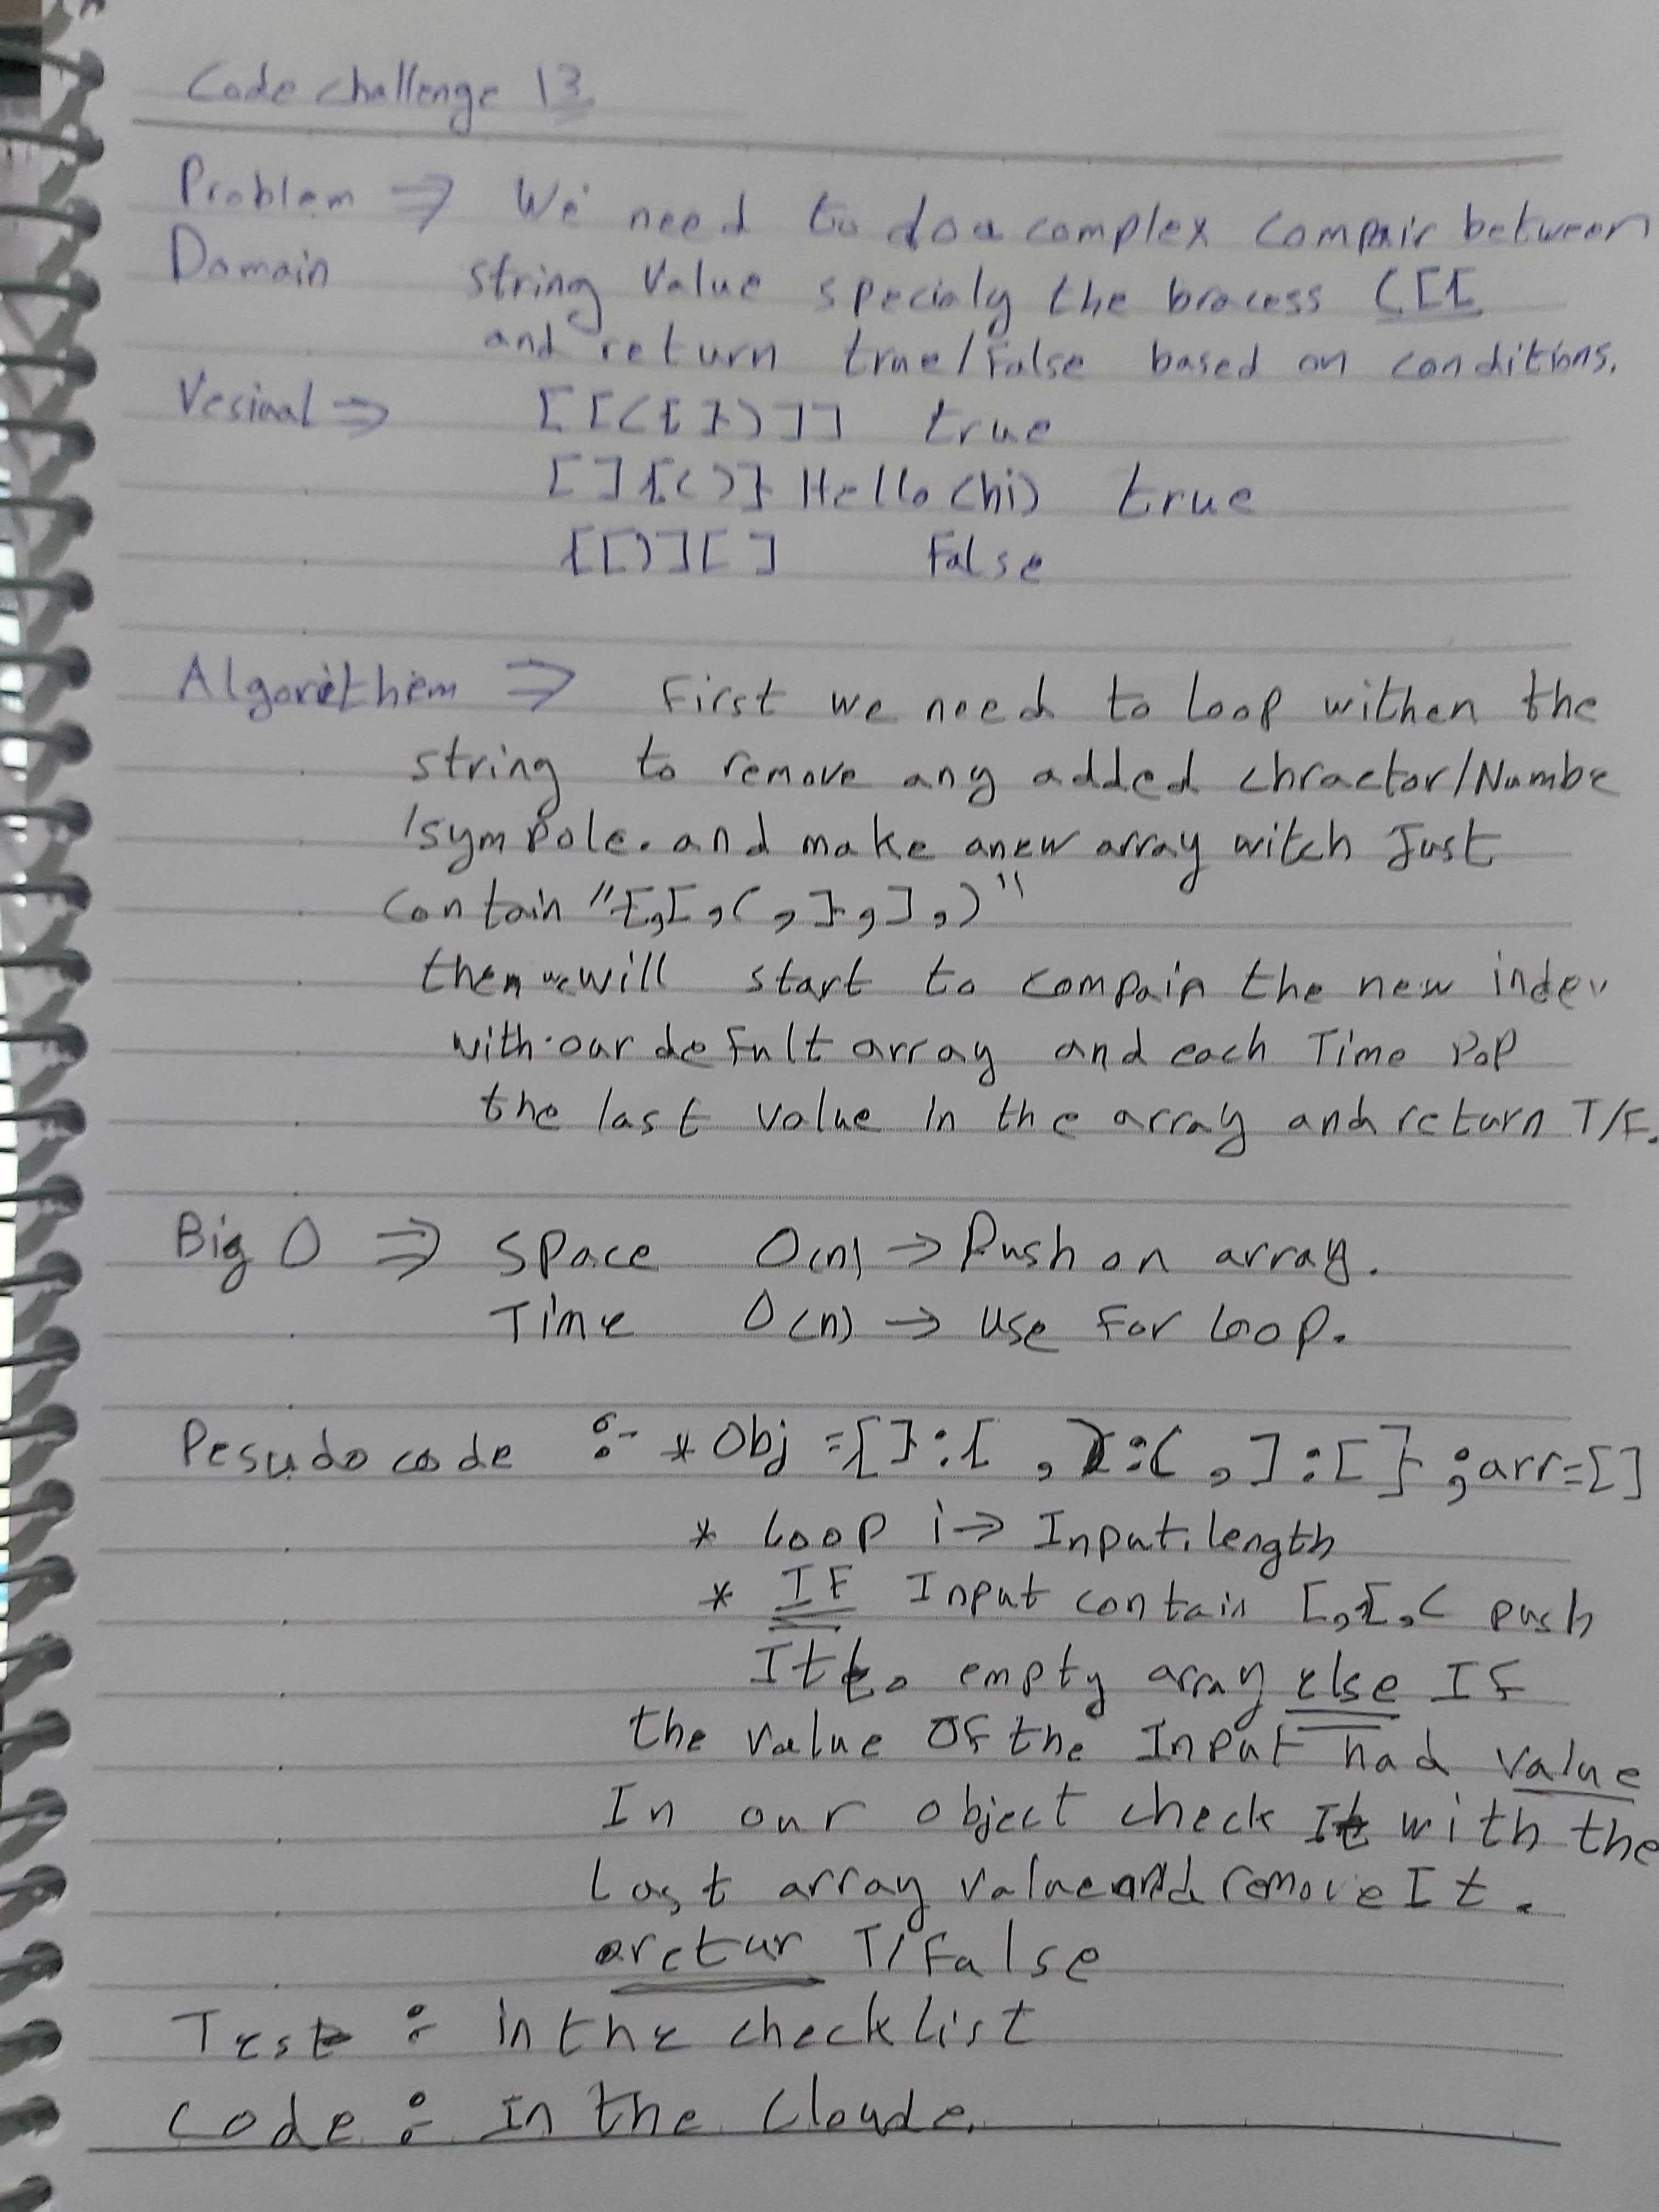 Code challenge 13
Problem ⇒ We need to do a complex compair between
Domain string Value specialy the bracess ([{
and return true/False based on conditions.
Vesiual ⇒ [[({})]] true
[]{()} Hello(hi) true
{[)][] False
Algorethem ⇒ First we need to loop withen the
string to remove any added chractor/Numbe
/sympole. and make anew array witch Just
contain "{,[,(,},],)"
then we will start to compair the new index
with our defult array and each Time PoP
the last value in the array and return T/F.
Big O ⇒ Space O(n) → Push on array.
Time O(n) → Use For Loop.
Pesudo code :- * Obj = {}:{ , ):( , ]:[} ; arr=[]
* Loop i → Input.length
* IF Input contain [,{,( push
It to empty array else IF
the value OF the Input had value
In our object check It with the
Last array value and remove It.
retur T/False
Test : in the checklist
Code : In the Cloude.